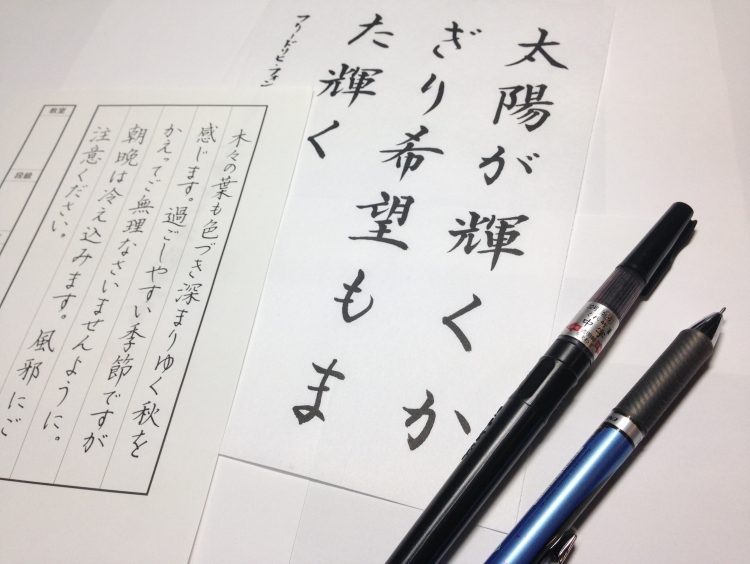 太陽が輝くか
ぎり希望もま
た輝く
フリードリヒ・フォン
木々の葉も色づき深まりゆく秋を
感じます。過ごしやすい季節ですが
かえってご無理なさいませんように。
朝晩は冷え込みます。風邪にご
注意ください。
教室
段級
中